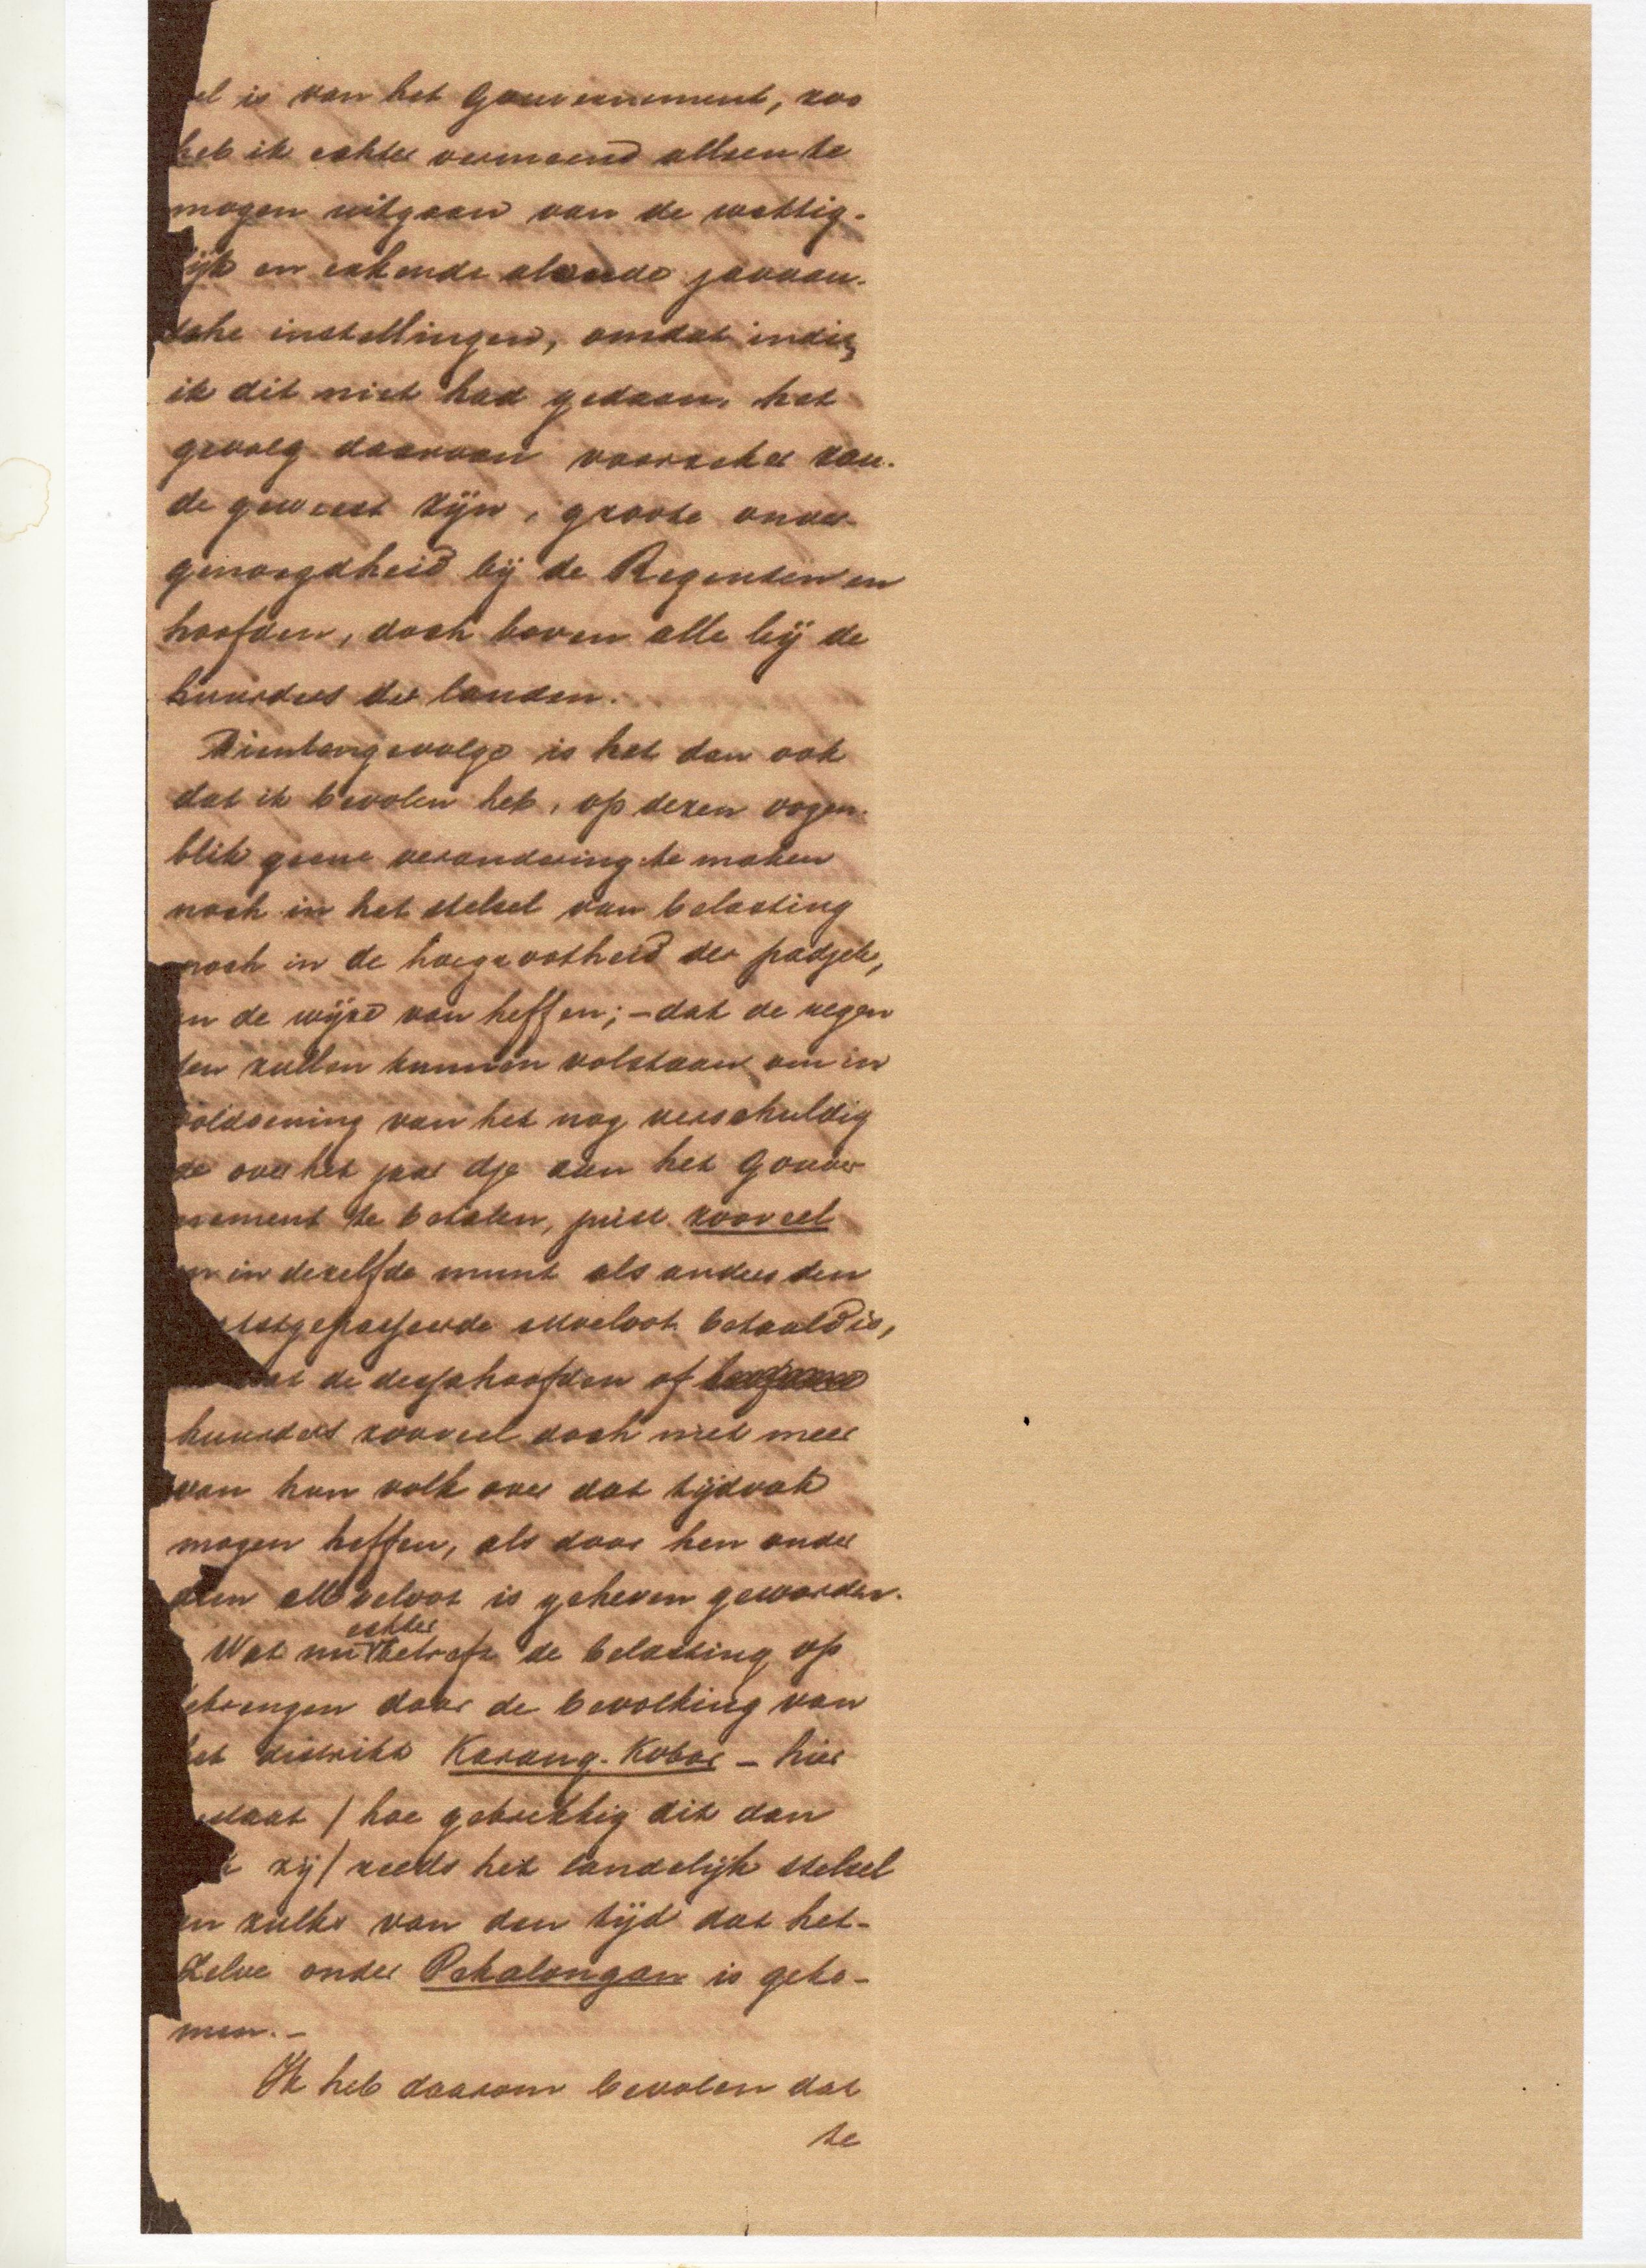 el is van het Gouvernement, zoo
heb ik echter vermeend alleen te
mogen uitgaan van de wettig-
lijk en erkende aloude javaan-
sche instellingen, omdat indien
ik dit niet had gedaan, het
gevolg daarvan voorzeker zou-
de geweest zijn, groote onver-
genoegdheid bij de Regenten en
hoofden, doch boven alle bij de
huurders der landen.
Dientengevolge is het dan ook
dat ik bevolen heb, op dezen oogen-
blik geene verandering te maken
noch in het stelsel van belasting
noch in de hoegrootheid der padjeh,
en de wijze van heffen; – dat de regen
ten zullen kunnen volstaan om in
voldoening van het nog verschuldig
de over het jaar dje aan het Gouver
nement te betalen, juist zooveel
en in dezelfde munt als anders den
stgepasseerde betaald is,
at de dessahoofden of
huurders zooveel doch niet meer
van hun volk over dat tijdvak
mogen heffen, als door hen onder
den is geheven geworden.
Wat nu echter betreft de belasting op
tebrengen door de bevolking van
het district Karang-Kobar – hier
estaat / hoe gebrekkig dit dan
k zij / reeds het landelijk stelsel
en zulks van den tijd dat het-
zelve onder Pekalongan is geko-
men. –
Ik heb daarom bevolen dat
te